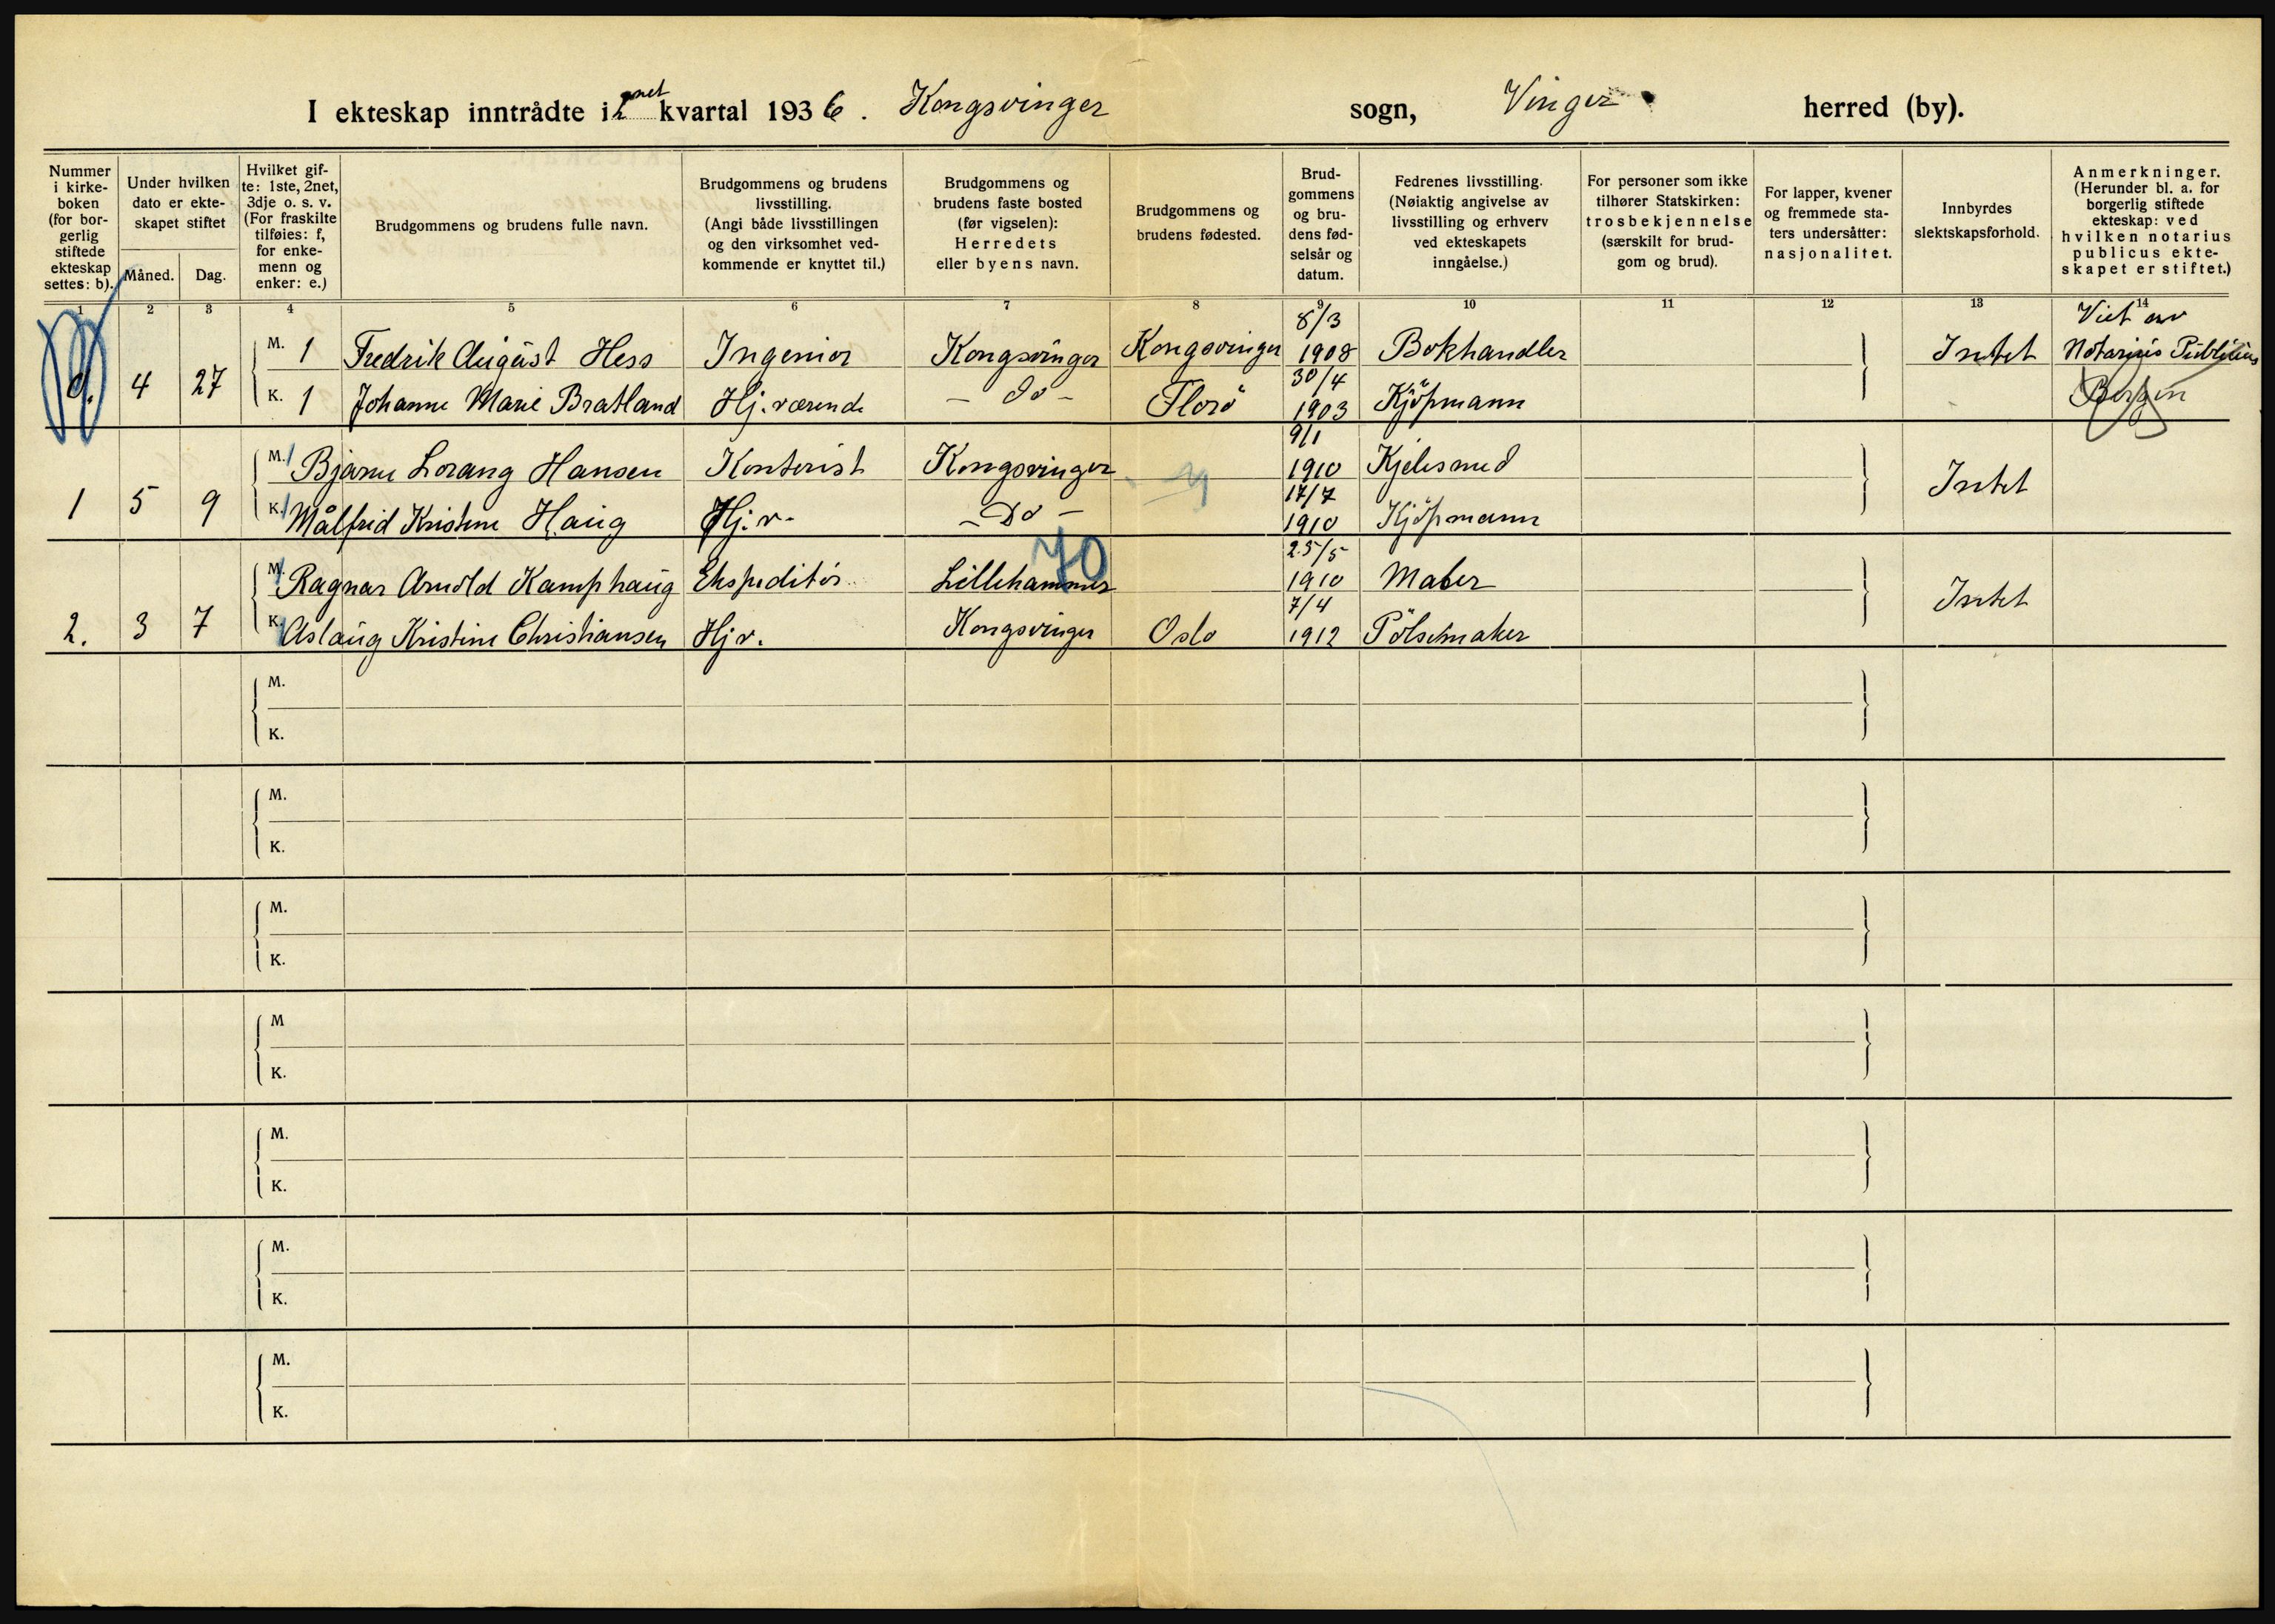 I ekteskap inntrådte i 2net kvartal 1936. Kongsvinger sogn, Vinger herred (by).
Nummer i kirke- boken (for bor- gerlig stiftede ekteskap settes: b).
Under hvilken dato er ekte- skapet stiftet
Måned. Dag.
Hvilket gif- te: 1ste, 2net, 3dje o. s. v. (For fraskilte tilføies: f, for enke- menn og enker: e.)
Brudgommens og brudens fulle navn.
Brudgommens og brudens livsstilling. (Angi både livsstillingen og den virksomhet ved- kommende er knyttet til.)
Brudgommens og brudens faste bosted (før vigselen): Herredets eller byens navn.
Brudgommens og brudens fødested.
Brud- gommens og bru- dens fød- selsår og datum.
Fedrenes livsstilling. (Nøiaktig angivelse av livsstilling og erhverv ved ekteskapets inngåelse.)
For personer som ikke tilhører Statskirken: trosbekjennelse (særskilt for brud- gom og brud).
For lapper, kvener og fremmede sta- ters undersåtter: nasjonalitet.
Innbyrdes slektskapsforhold.
Anmerkninger. (Herunder bl. a. for borgerlig stiftede ekteskap: ved hvilken notarius publicus ekte- skapet er stiftet.)
1 2 3 4 5 6 7 8 9 10 11 12 13 14
M. 1 Fredrik August Hess Ingeniør Kongsvinger Kongsvinger 8/3 1908 Bokhandler Intet Viet av Notarius Publicus
4 27 K. 1 Johanne Marie Bratland Hj. værende - do - Florö 30/4 1903 Kjöpmann Bergen
M. 1 Bjarne Lorang Hansen Kontorist Kongsvinger 9/1 1910 Kjelesmed Intet
1 5 9 K. 1 Målfrid Kristine Haug Hj. v. - Do - 17/7 1910 Kjöpmann
70
M. 1 Ragnar Arnold Kamphaug Ekspeditör Lillehammer 25/5 1910 Maler Intet
2. 3 7 K. Aslaug Kristine Christiansen Hj v. Kongsvinger Oslo 7/4 1912 Pölsemaker
M.
K.
M.
K.
M.
K.
M
K.
M.
K.
M.
K.
M.
K.